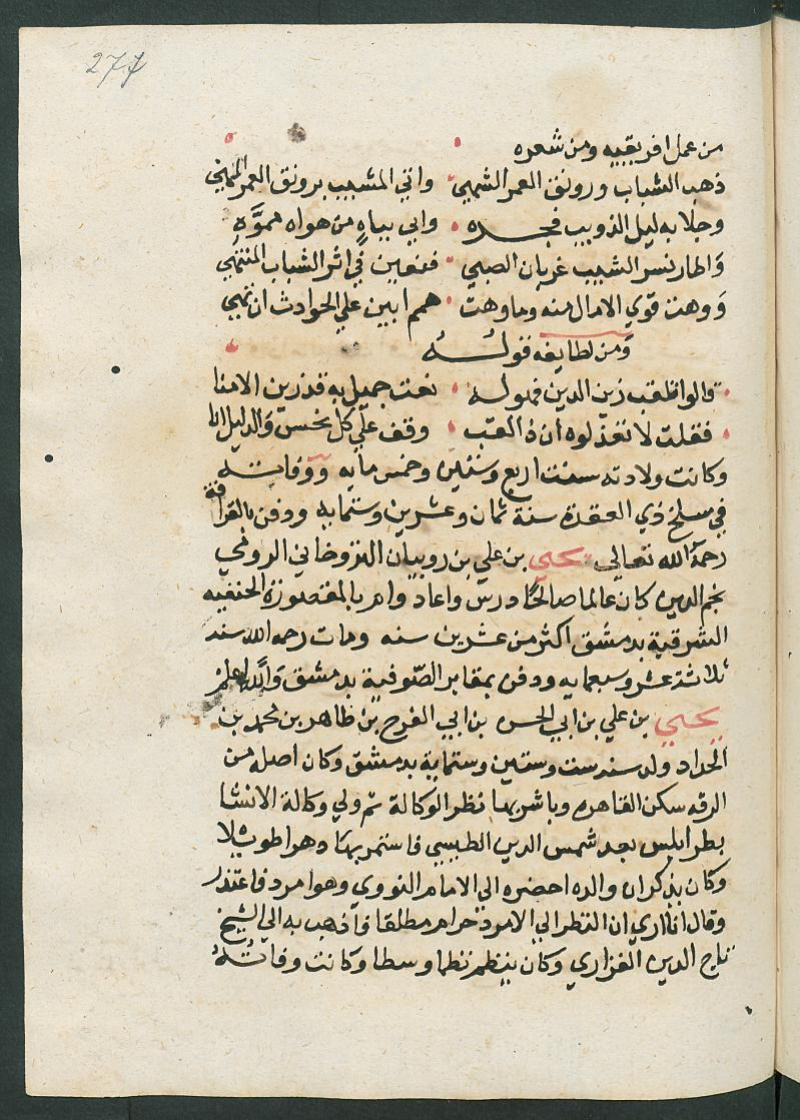 277
من عمل افريقيه ومن شعره
ذهب الشباب ورونق العمر الشهي واتي المشيب برونق العمر
وجلا به ليل الذويب فجره وابي بياه من هواه مموَّه
واطار نسر الشيب غربان الصبي فنعين في اثر الشباب المنتهي
ووهت قوي الامال منه وما وهت همم ابين علي الحوادث ان تهي
ومن لطايفه قوله
قالوا تلقب زين الدين فهو له نعت جميل به قد زين الامنا
فقلت لا تعذلوه ان ذا لقب وقف علي كل نحس والدليل انا
وكانت ولادته سنت اربع وستين وخمس مايه ووفاته
في سلخ ذي القعدة سنة ثمان وعشرين وستمايه ودفن بالقرافة
رحمة الله تعالي يحيي بن علي بن روبيان الرومي
نجم الدين كان عالما صالحا درس واعاد وام بالمقصورة الحنفيه
الشرقية بدمشق اكثر من عشرين سنه ومات رحمه الله سنه
ثلاثة عشر وسبعمايه ودفن بمقابر الصّوفية بدمشق والله اعلم
يحيي بن علي بن ابي الحسن بن ابي الفرج بن طاهر بن محمد بن
الحداد ولد سنه ست وستين وستماية بدمشق وكان اصله من
الرقه سكن القاهره وباشر بها نظر الوكالة ثم ولي وكالة الانشا
بطرابلس بعد شمس الدين الطيبي فاستمر بها دهرا طويلا
وكان يذكر ان والده احضره الي الامام النووي وهو امرد فاعتذر
وقال انا اري ان النظر الي الامرد حرام مطلقا فاذهب به الي الشيخ
تاج الدين الفزاري وكان ينظم نظما وسطا وكانت وفاته